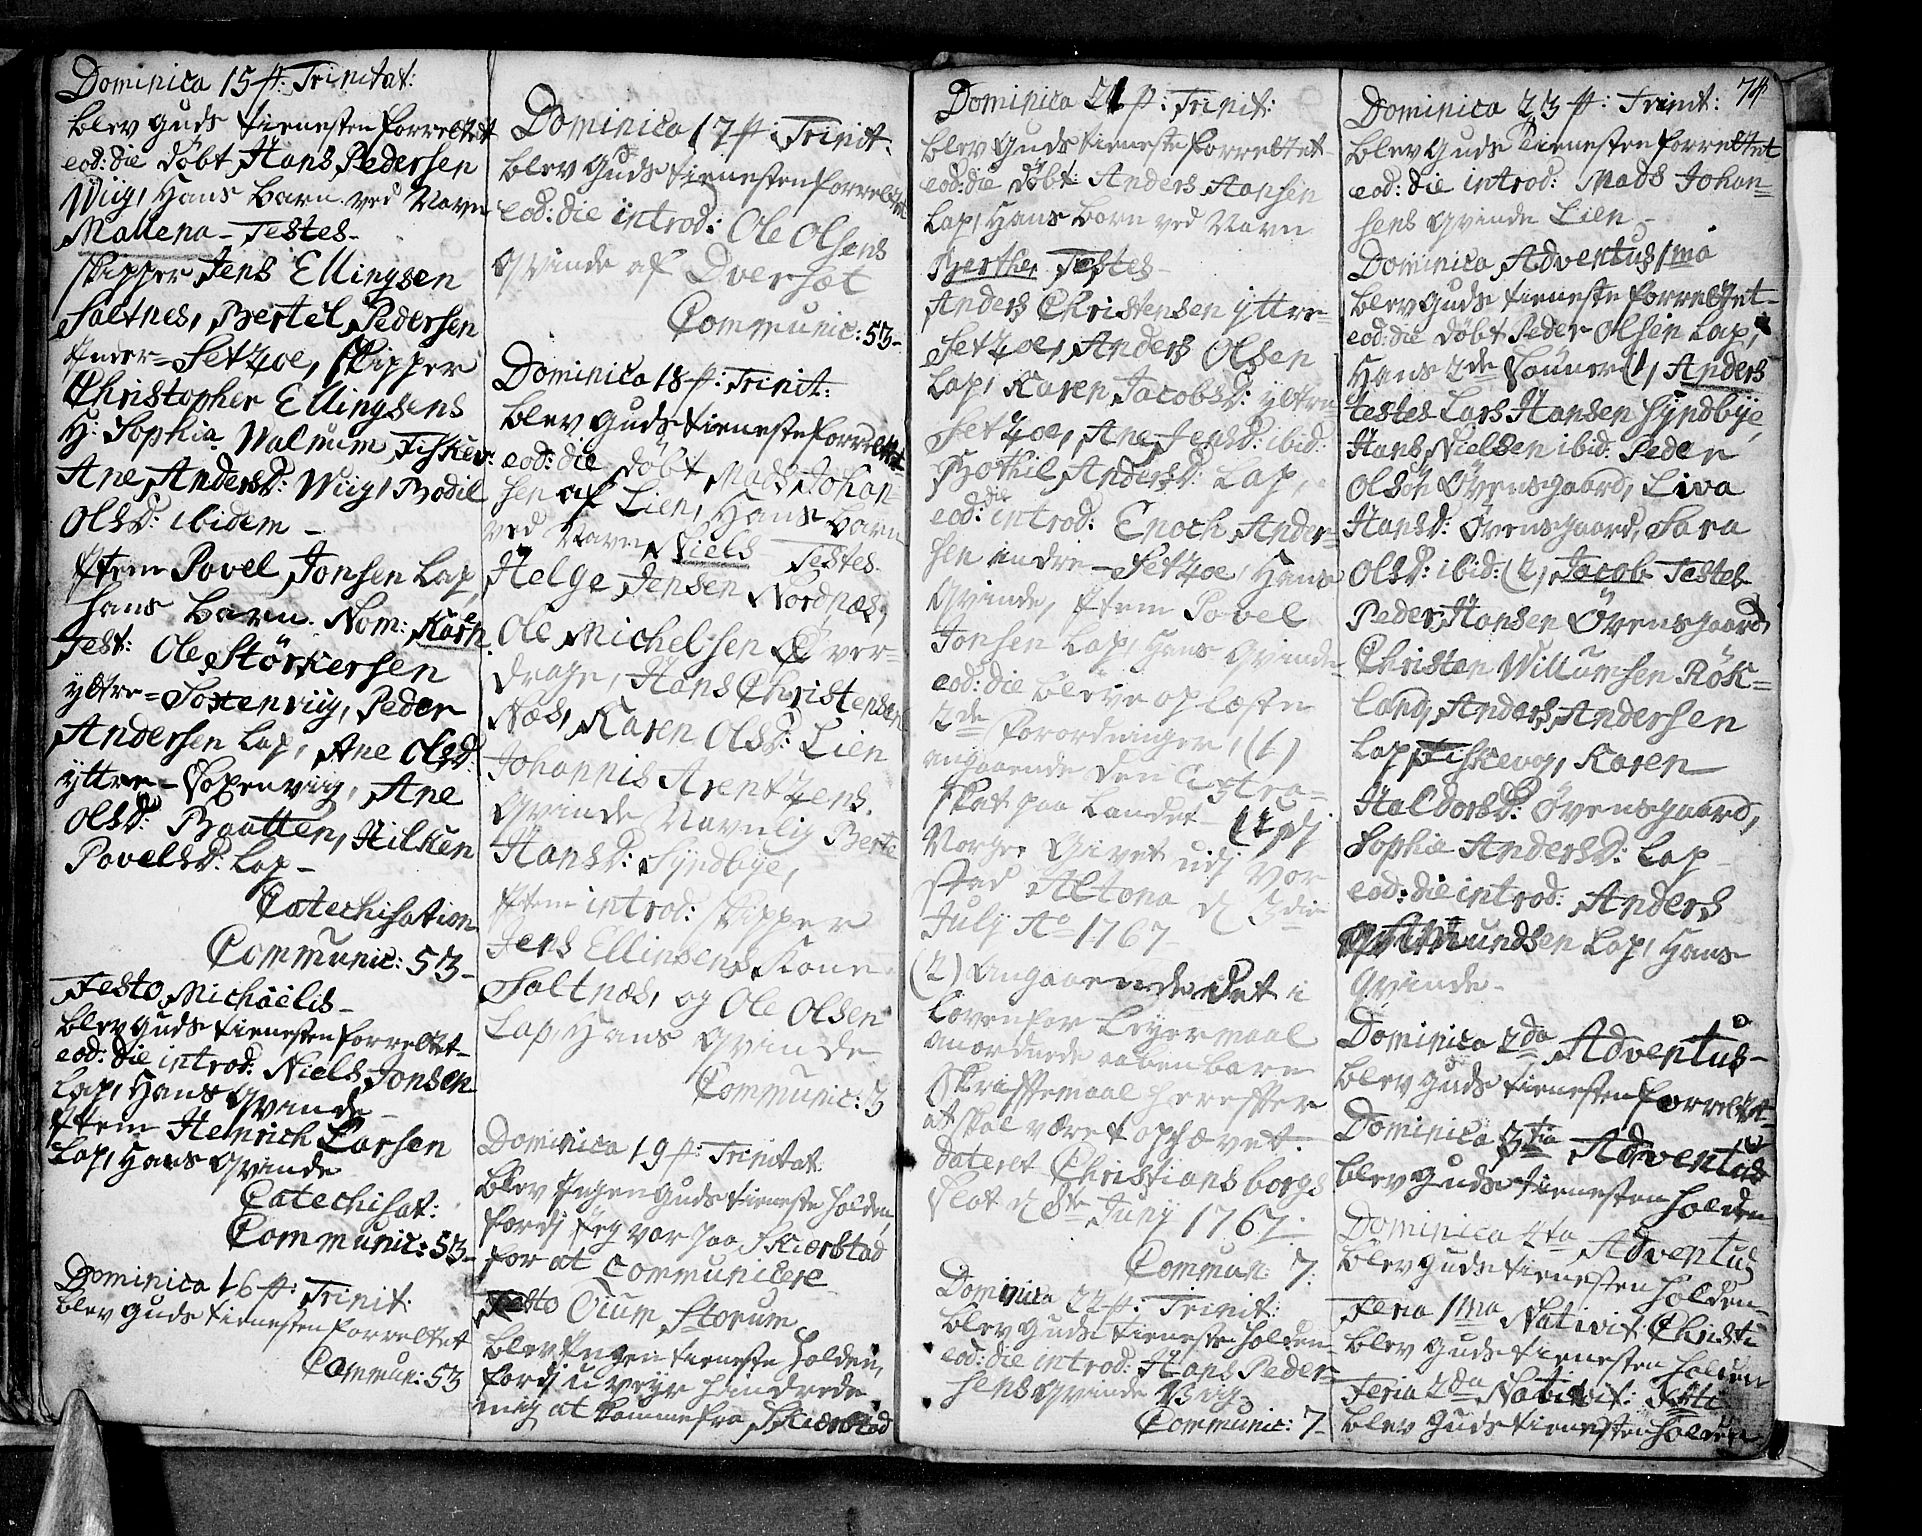 Dominica 15 p: Trinitat:
blev guds tienesten forrettet
eod: die döbt Hans Pedersen
Wiig, Hans barn ved Navn
Mallena - Testes -
skipper Jens Ellingsen
Saltnes, Bertel Pedersen
Inder= Setzoe, Skipper
Christopher Ellingsens
H: Sophia Walnum, Fiskev:
Ane Andersd: Wiig, Bodil
Olsd: ibidem -
Item Povel Jonsen Lap,
hans barn. Nom: Karen
Test: Ole Störkersen
yttre= Soxenviig, Peder
Andersen Lap, Ane Olsd:
yttre - Soxenviig, Ane
Olsd: Baatten, Hilken
Povelsd: Lap -
Catechisation
Communic: 53 -
Festo Michäelis -
blev guds tienesten forrettet -
eod: die introd: Niels Jonsen
Lap, Hans Qvinde -
Item Heinrich Larsen
Lap, Hans Qvinde
Catechisat:
Communic: 53 -
Dominica 16 p: Trinit:
blev guds tienesten forrettet
Commun: 53
Dominica 17 p: Trinit:
blev guds tienesten forrettet
eod: die introd: Ole Olsens
Qvinde af Dverset
Communic: 53 -
Dominica 18 p: Trinit:
blev guds tieneste forrettet
eod: die döbt Mads Johan=
sen af Lien, Hans barn
ved Navn Niels - Testes -
Helge Jensen Nordnæs,
Ole Michelsen Over=
drage, Hans Christensen
Næs, Karen Olsd: Lien
Johannis Arentzens
Qvinde Navnlig Berte
Hansd: Syndbye,
Item introd: skipper
Jens Ellinsens Kone
Saltnæs, og Ole Olsen
Lap, Hans Qvinde
Communic: 3
Dominica 19 p: Trinitat
blev Ingen guds tieneste holden,
fordj Jeg var paa Skierstad
for at communicere
Festo Oium Storum
blev Ingen tieneste holden,
fordj uveyr hindrede
mig at komme fra Skierstad
Dominica 21 p: Trinit: 
blev guds tieneste forrettet
eod: die döbt Anders Hansen
Lap, Hans barn ved Navn
Berthe, Testes -
Anders Christensen yttre=
Setzoe, Anders Olsen
Lap, Karen Jacobsd: yttre
Setzoe, Ane Jensd: ibid:
Bothil Andersd: Lap,
eod: die introd: Enoch Ander=
sen indre - Setzoe Hans
Qvinde, Item Povel
Jonsen Lap, Hans Qvinde
eod: die bleve oplæste
2de forordninger, (1)
angaaende den Extra=
skat paa Landet udj
Norge, Givet udj vor
stad Altona d 3die
July Ao 1767
(2) Angaaende det i
Loven for Leyermaal
anordnede aabenbare
Skriftemaal hereffter
at skal være ophævet.
Dateret Christiansborgs
slot d 8de Juny 1767.
Commun: 7.
Dominica 22 p: Trinit:
blev guds tieneste holden
eod: die introd: Hans Peder=
sens Qvinde Viig
Communic: 7 -
74
Dominica 23 p: Trinit:
blev guds Tienesten forrettet
eod: die introd: Mads Johan=
sens Qvinde Lien -
Dominica Adventus 1ma
blev guds tieneste forrettet -
eod: die döbt Peder Olsen Lap,
Hans 2de Sönner (1) Anders
testes Lars Hansen Syndbye,
Hans Nielsen ibid: Peder
Olsön Övensgaard, Liva
Hansd: Övensgaard, Sara
Olsd: ibid: (2) Jacob Testes
Peder Hansen Övensgaard
Christen Willumsen Rök=
land, Anders Andersen
Lap Fiskevog, Karen
Haldorsd: Övensgaard,
Sophie Andersd: Lap -
eod: die introd: Anders
Amundsen Lap, Hans
Qvinde -
Dominica 2da Adventus -
blev guds tienesten forrettet -
Dominica 3tia Adventus
blev guds tienesten holden
Dominica 4ta Adventus
blev guds tienesten holden -
Feria 1ma Nativit Christi
blev guds tienesten holden
Feria 2da Nativit:
blev guds tienesten holden